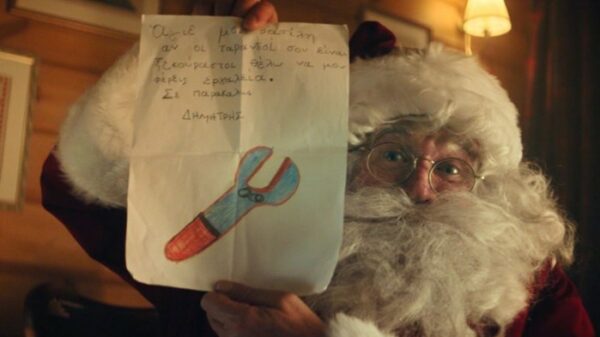 Άγιε μου Βασίλη
αν οι τάρανδοί σου είναι
ξεκούραστοι θέλω να μου
φέρεις εργαλεία.
Σε παρακαλώ
ΔΗΜΗΤΡΗΣ